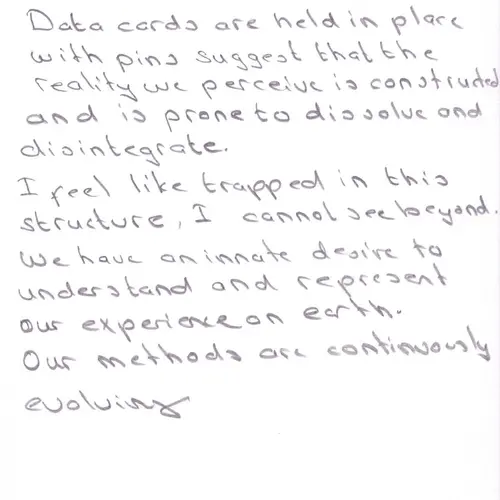 Data cards are held in place
with pins suggest that the
reality we perceive is constructed
and is prone to dissolve and
disintegrate.
I feel like trapped in this
structure, I cannot see beyond.
We have an innate desire to
understand and represent
our experience on earth.
Our methods are continuously
evolving